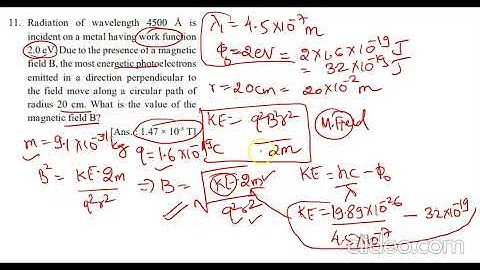 11. Radiation of wavelength 4500 Å is
incident on a metal having work function
2.0 eV. Due to the presence of a magnetic
field B, the most energetic photoelectrons
emitted in a direction perpendicular to
the field move along a circular path of
radius 20 cm. What is the value of the
magnetic field B?
[Ans.: 1.47 × 10⁻⁵ T]
λ = 4.5×10⁻⁷ m
ϕ₀ = 2eV = 2×1.6×10⁻¹⁹ J
= 32×10⁻¹⁹ J
r = 20cm = 20×10⁻² m
KE = q²B²r² / 2m
M. Field
m = 9.1×10⁻³¹ kg
q = 1.6×10⁻¹⁹ C
B² = KE·2m / q²r² ⇒ B = √ KE·2m / q²r²
KE = hc / λ − ϕ₀
KE = 19.89×10⁻²⁶ / 4.5×10⁻⁷ − 32×10⁻¹⁹
clideo.com